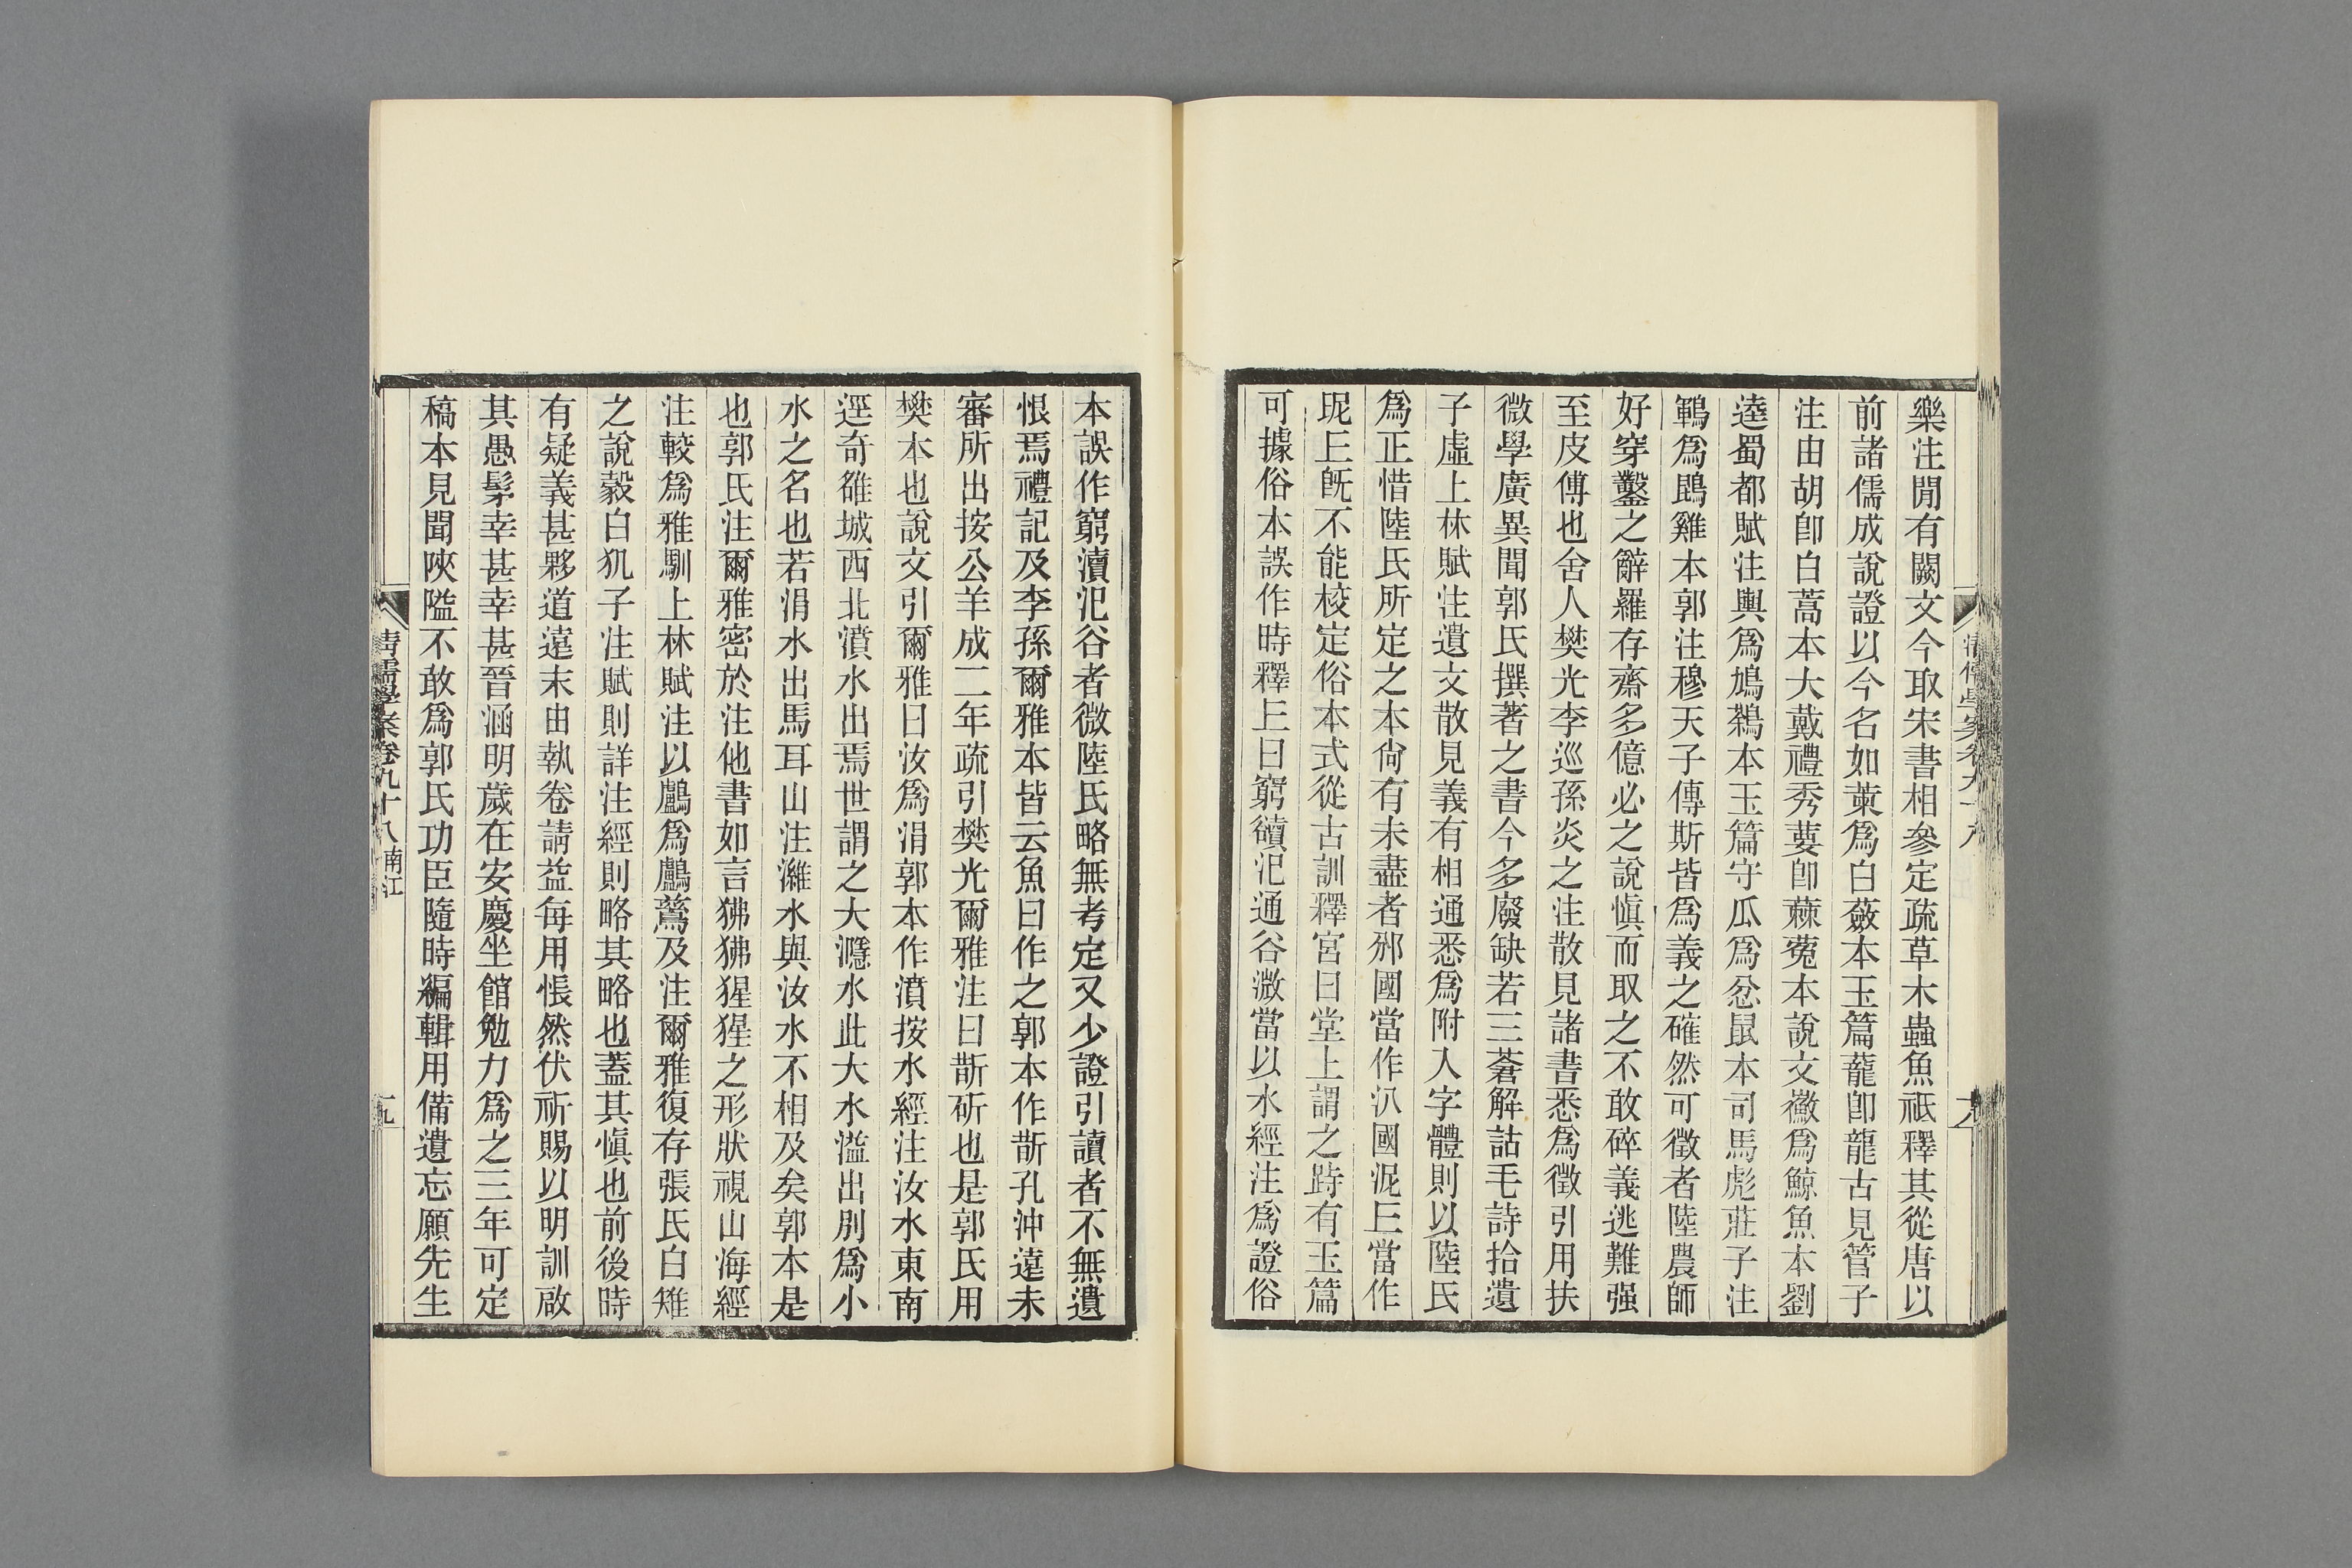 樂注閒有闕文今取宋書相參定疏草木蟲魚祗釋其從唐以
前諸儒成說證以今名如萰爲白蘞本玉篇蘢卽龍古見管子
注由胡卽白蒿本大戴禮秀葽卽蕀蒬本說文黴爲鯨魚本劉
逵蜀都賦注輿爲鳩鷜本玉篇守瓜爲忿鼠本司馬彪莊子注
鶤爲鵾雞本郭注穆天子傳斯皆爲義之確然可徵者陸農師
好穿鑿之辭羅存齋多億必之說愼而取之不敢碎義逃難强
至皮傅也舍人樊光李巡孫炎之注散見諸書悉爲徵引用扶
微學廣異聞郭氏撰著之書今多廢缺若三蒼解詁毛詩拾遺
子虛上林賦注遺文散見義有相通悉爲附入字體則以陸氏
爲正惜陸氏所定之本尙有未盡者邠國當作汃國泥丘當作
坭丘旣不能校定俗本式從古訓釋宮曰堂上謂之跱有玉篇
可據俗本誤作時釋丘曰窮豄汜通谷溦當以水經注爲證俗
本誤作窮瀆汜谷者微陸氏略無考定又少證引讀者不無遺
恨焉禮記及李孫爾雅本皆云魚曰作之郭本作斮孔沖遠未
審所出按公羊成二年疏引樊光爾雅注曰斮斫也是郭氏用
樊本也說文引爾雅曰汝爲涓郭本作濆按水經注汝水東南
逕奇雒城西北濆水出焉世謂之大㶏水此大水溢出別爲小
水之名也若涓水出馬耳山注濰水與汝水不相及矣郭本是
也郭氏注爾雅密於注他書如言狒狒猩猩之形狀視山海經
注較爲雅馴上林賦注以鸕爲鸕鶿及注爾雅復存張氏白雉
之說豰白犰子注賦則詳注經則略其略也蓋其愼也前後時
有疑義甚夥道遠末由執卷請益每用悵然伏祈賜以明訓啟
其愚髳幸甚幸甚晉涵明歲在安慶坐館勉力爲之三年可定
稿本見聞陝隘不敢爲郭氏功臣隨時編輯用備遺忘願先生
清儒學案卷九十八 南江